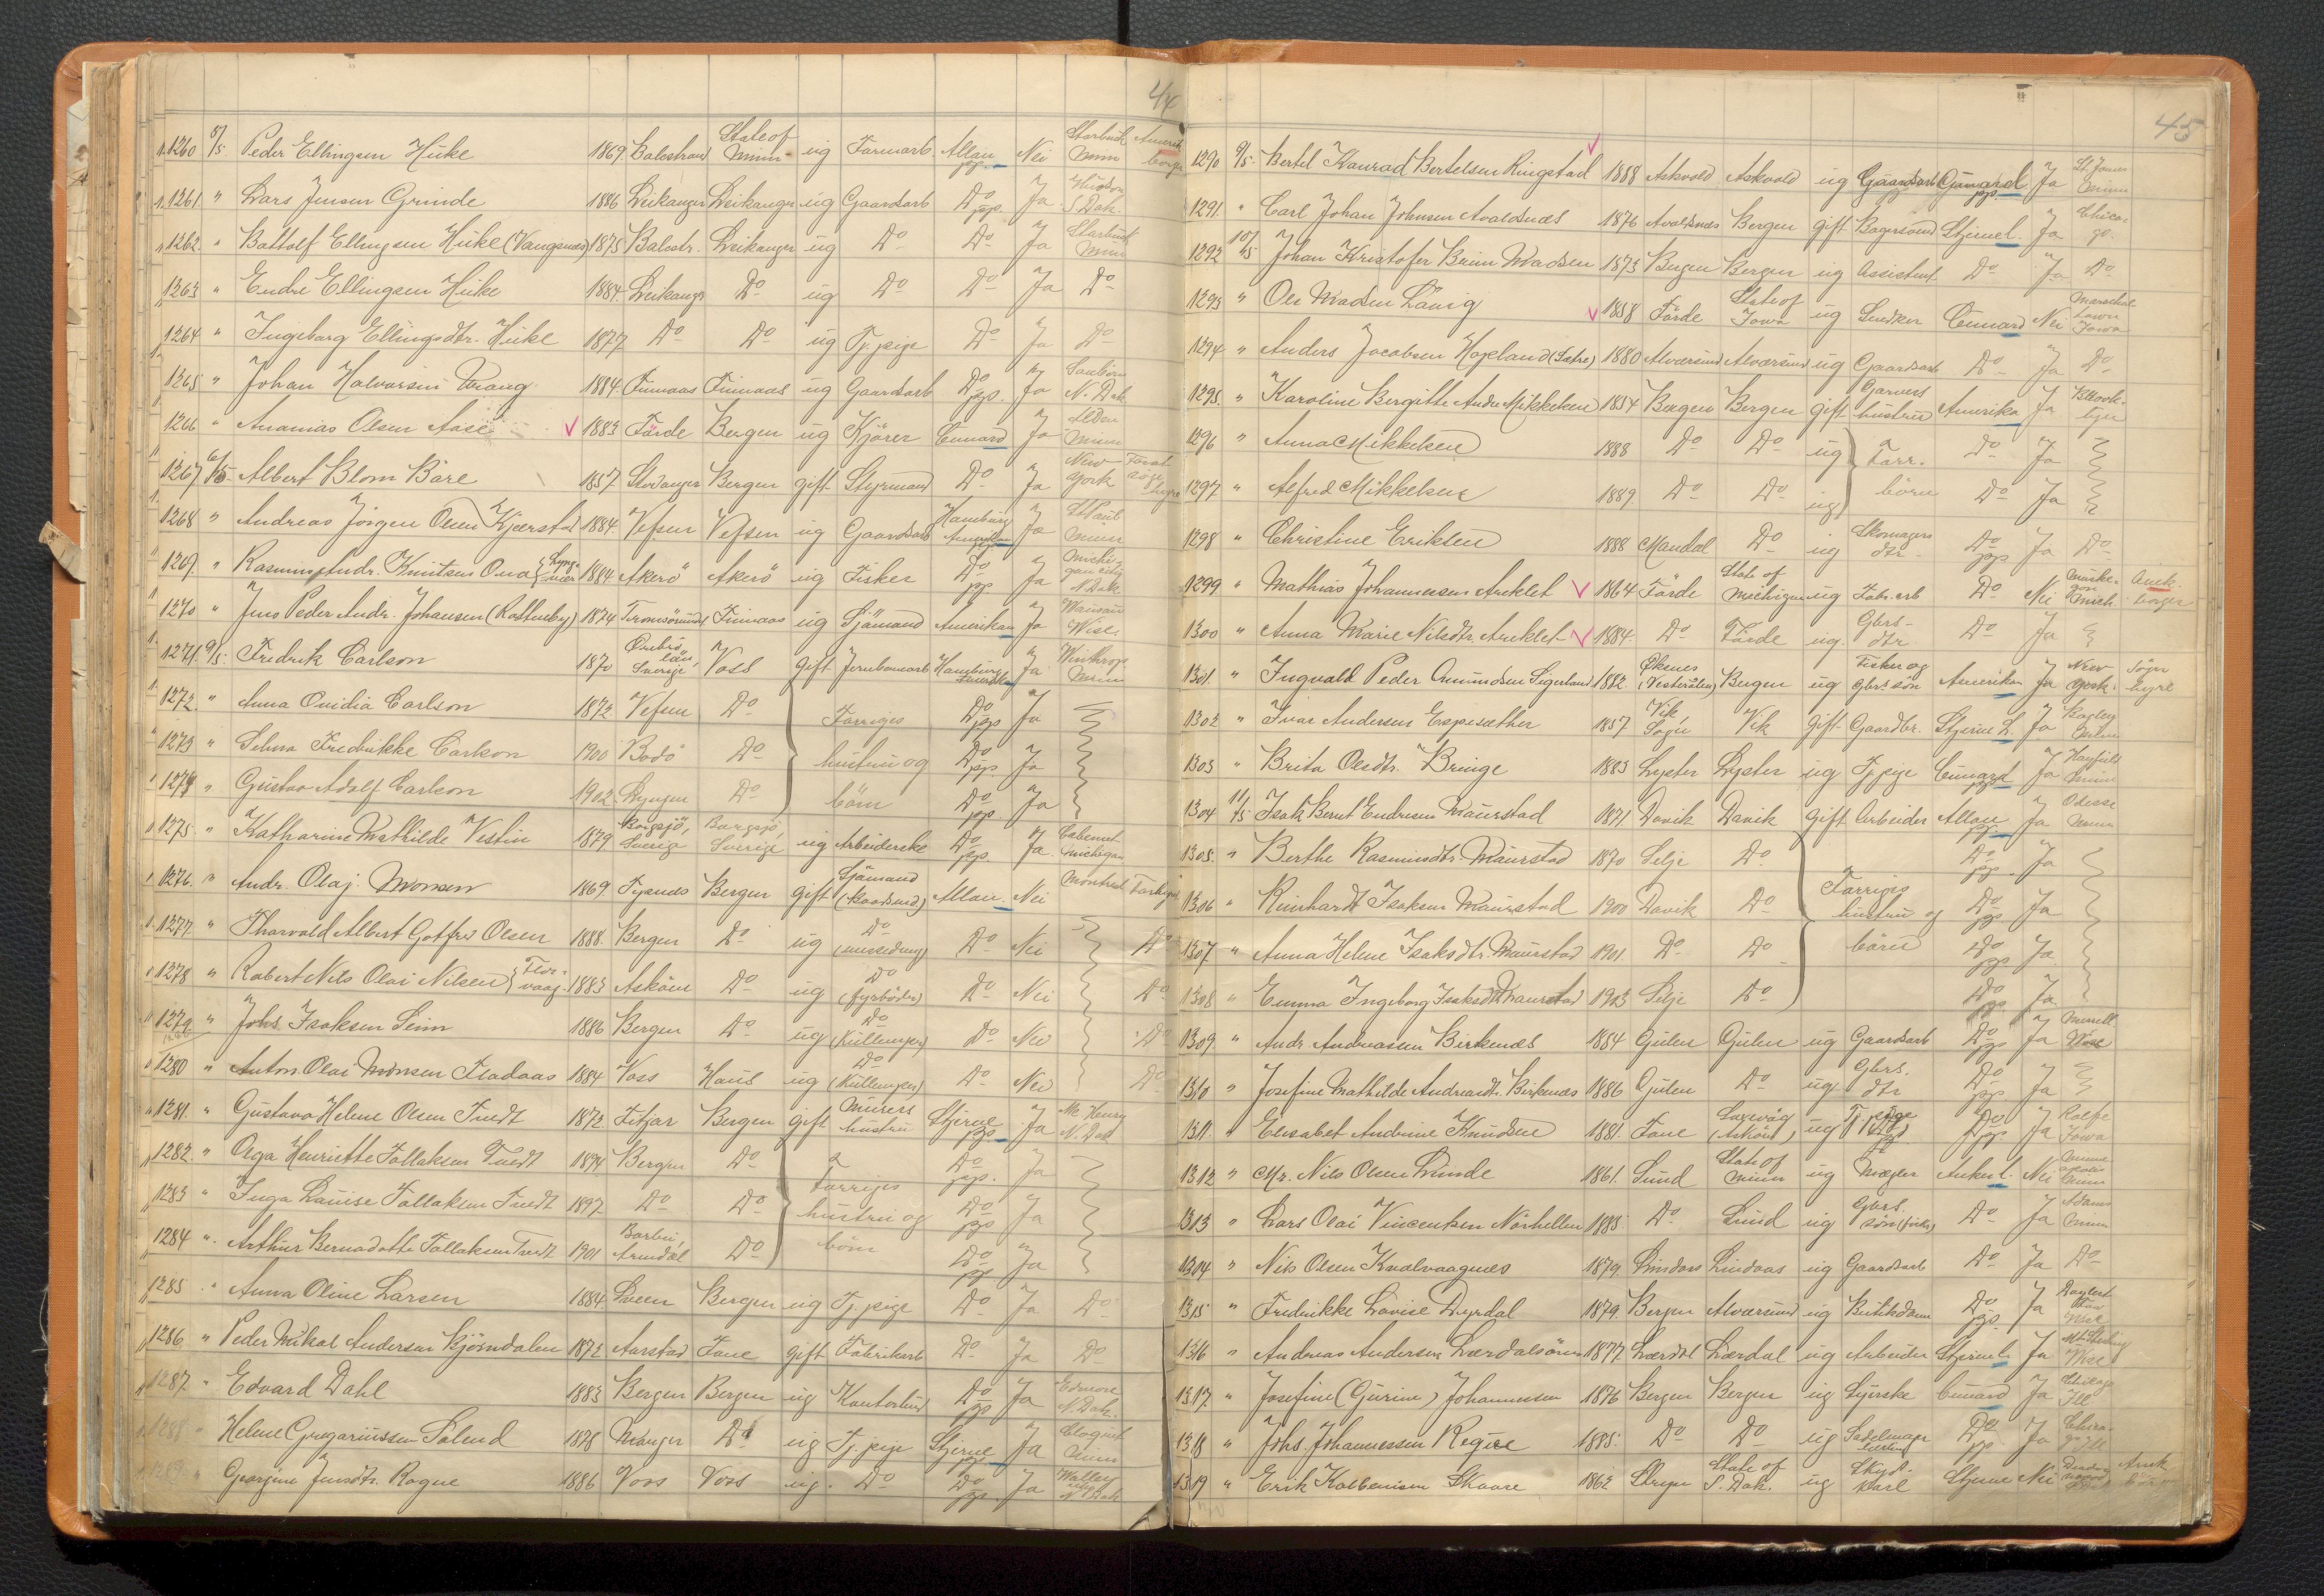 44
1260 8/5 Peder Ellingsen Huke 1869 Balestrand State of Minn ug Farmarb Allan pp. Nei Starbuck Minn Amerik borger
1261 " Lars Jensen Grinde 1886 Leikanger Leikanger ug Gaardsarb Do pp. Ja Hudson S. Dak.
1262 " Battolf Ellingsen Huke (Vangsnæs) 1875 Balestr. Leikanger ug Do Do Ja Starbuck Minn
1263 " Endre Ellingsen Huke 1884 Leikanger Do ug Do Do Ja Do
1264 " Ingeborg Ellingsdtr. Huke 1877 Do Do ug Tj. pige Do Ja Do
1265 " Johan Halvorsen 1884 Finnaas Finnaas ug Gaardsarb Do pp. Ja Sanborn N. Dak
1266 " Ananias Olsen Aase 1883 Förde Bergen ug Kjörer Cunard Ja Alden Minn
1267 Albert Blom Bäre 1857 Stavanger Bergen gift Styrmand Do Ja New York
1268 " Andreas Jörgen Olsen Kjærstad 1884 Vefsen Vefsen ug Gaardsarb Hamburg Amerika Ja St Paul Minn
1269 " Rasmus Andr. Knutsen Ona 1884 Akerö Akerö ug Fisker Do pp Ja Michigan city N. Dak
1270 " Jens Peder Andr. Johansen (Rottenby) 1874 Tromsösund Finnaas ug Sjömand Amerikan Ja Wausau Wisc.
1271 9/5 Fredrik Carlson 1870 Örebro län, Sverige Voss gift Jernbanearb Hamburg Amerika Ja Winthrop Minn
1272 " Anna Ovidia Carlson 1872 Vefsen Do Forriges Do pp Ja
1273 " Selma Fredrikke Carlson 1900 Bodö Do hustru og Do pp Ja
1274 " Gustav Adolf Carlson 1902 Lyngen Do börn Do pp. Ja
1275 " Katharina Mathilde Vestin 1879 Borgsjö, Sverige Borgsjö, Sverige ug Arbeiderske Do pp. Ja Michigan
1276 " Andr. Olaj. Monsen 1869 Tysnes Bergen gift Sjömand (Baadsmd) Allan Nei Montreal
1277 " Thorvald Albert Gotfred Olsen 1888 Bergen Do ug Do (messedreng) Do Nei Do
1278 " Robert Nils Olai Nilsen Florvaag 1883 Asköen Do ug Do (fyrböder) Do Nei Do
1279 " Johs. Isaksen Seim 1886 Bergen Do ug Do (Kullemper) Do Nei Do
1280 " Anton Olai Monsen Fladaas 1884 Voss Haus ug Do (Kullemper) Do Nei Do
1281 " Gustava Helene Olsen Tvedt 1872 Fitjar Bergen gift Murers hustru Stjerne pp Ja Mc Henry N. Dak
1282 " Olga Henriette Tollaksen Tvedt 1894 Bergen Do Forriges Do pp. Ja
1283 " Inga Lauise Tollaksen Tvedt 1897 Do Do hustru og Do pp Ja
1284 " Arthur Bernadotte Tollaksen Tvedt 1901 Barbu, Arendal Do börn Do pp Ja
1285 " Anna Oline Larsen 1884 Sveen Bergen ug Tj. pige Do Ja Do
1286 " Peder Mikal Andersen Björndalen 1872 Aarstad Fane gift Fabrikarb Do Ja Do
1287 " Edvard Dahl 1883 Bergen Bergen ug Kontorist Do pp Ja Edmore N. Dak.
1288 " Helene Gregoriussen Solend 1878 Manger Do ug Tj. pige Stjerne pp Ja Cloquet Minn
1289 " Georgine Jensdtr. Rogne 1886 Voss Voss ug. Do Do pp Ja N. Dak
45
1290 9/5 Bertel Konrad Bertelsen Ringstad 1888 Askvold Askvold ug Gaardsarb Cunard pp Ja St. James Minn
1291 " Carl Johan Johnsen Avaldsnæs 1876 Avaldsnæs Bergen gift Bagersvend Stjernel. Ja Chicago.
1292 10/5 Johan Kristofer Brun Madsen 1873 Bergen Bergen ug Assistent Do Ja Do
1293 " Ole Madsen Lavig 1858 Förde State of Iowa ug Snedker Cunard Nei Marschal town Iowa
1294 " Anders Jacobsen Hopland (Sætre) 1880 Alværsund Alværsund ug Gaardsarb Do Ja Do
1295 " Karoline Bergitte Andrea Mikkelsen 1854 Bergen Bergen gift Garvers hustru Amerika Ja Brooklyn
1296 " Anna Mikkelsen 1888 Do Do ug Forr. Do Ja
1297 " Alfred Mikkelsen 1889 Do Do ug börn Do Ja
1298 " Christine Eriksen 1888 Mandal Do ug Skomagers dtr. Do pp Ja Do
1299 " Mathias Johannessen Areklet 1864 Förde State of Michigan ug Fabr.arb Do Nei Muskegon Mich. Amk. borger
1300 " Anna Marie Nilsdtr. Areklet 1884 Do Förde ug. Gbrs-dtr Do Ja
1301 " Ingvald Peder Amundsen Sigerland 1882 Öksnes (Vesterålen) Bergen ug Fisker og Gbrs. sön Amerikan Ja New York. Söger hyre
1302 " Ivar Andersen Espesæther 1857 Vik, Sogn Vik gift Gaardbr. Stjerne L. Ja Bagley Minn
1303 " Brita Olsdtr. Bringe 1883 Lyster Lyster ug Tj. pige Cunard pp Ja Hayfield Minn
1304 11/5 Isak Bernt Endresen Maurstad 1871 Davik Davik gift Arbeider Allan pp Ja Odessa Minn
1305 " Berthe Rasmusdtr. Maurstad 1870 Selje Do Do pp. Ja
1306 " Reinhardt Isaksen Maurstad 1900 Davik Do Forriges hustru og Do pp Ja
1307 " Anna Helene Isaksdtr. Maurstad 1901 Do Do börn Do pp Ja
1308 " Emma Ingeborg Isaksdtr Maurstad 1903 Selje Do Do pp Ja
1309 " Andr. Andreassen Birkenæs 1884 Gulen Gulen ug Gaardsarb Do pp Ja Merrill Wisc
1310 " Josefine Mathilde Andreasdtr. Birkenæs 1886 Gulen Do ug Gbrs. dtr Do pp Ja
1311 " Elisabet Andrine Knudsen 1881 Fane Laxevåg (Asköen) ug Tj. pige Do pp Ja Iowa
1312 " Mr. Nils Olsen Lunde 1861 Sund State of Minn ug Mægler Ankerl. Nei Minneapolis Minn
1313 " Lars Olai Vincentsen Nörhellen 1885 Do Sund ug Gbrs. sön (fisker) Do Ja Adams Minn
1304 " Nils Olsen Kvalvaagnæs 1879 Lindaas Lindaas ug Gaardsarb Do Ja Do
1315 " Fredrikke Lovise Dyrdal 1879 Bergen Alværsund ug Butikdame Do pp Ja Wisc
1316 " Andreas Andersen Lærdalsören 1877 Lærdal Lærdal ug Arbeider Stjernel. Ja Mt Sterling Wisc
1317 " Josefine (Gurine) Johannesen 1876 Bergen Bergen ug Syerske Cunard Ja Chicago Ill
1318 " Johs. Johannessen Regtse 1885 Do Do ug Sadelmager Do pp. Ja Chicago Ill
1319 " Erik Kolbensen Skaare 1863 Stryn State of S. Dak. ug Skydskarl Stjerne Nei Amk